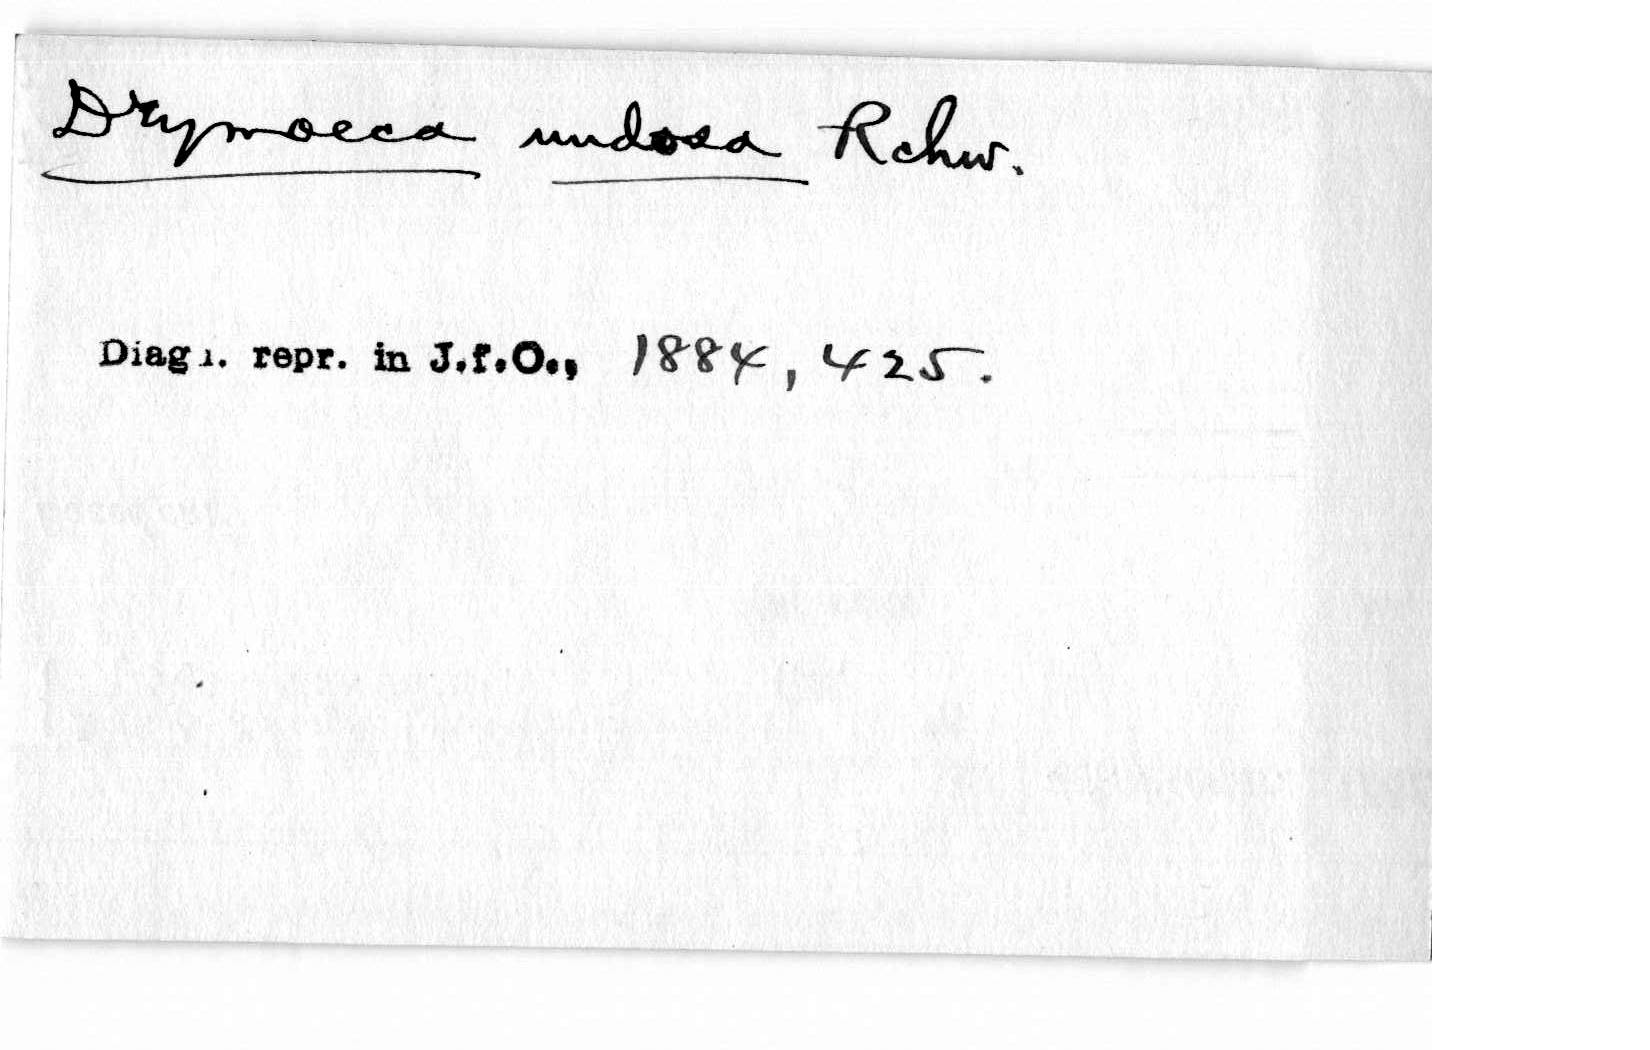 Drymoeca undosa Rchw.
Diagn. repr. in J.f.O., 1884, 425.